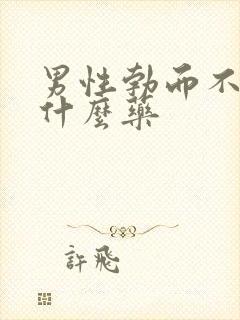 男性勃而不
什麼藥
許飛